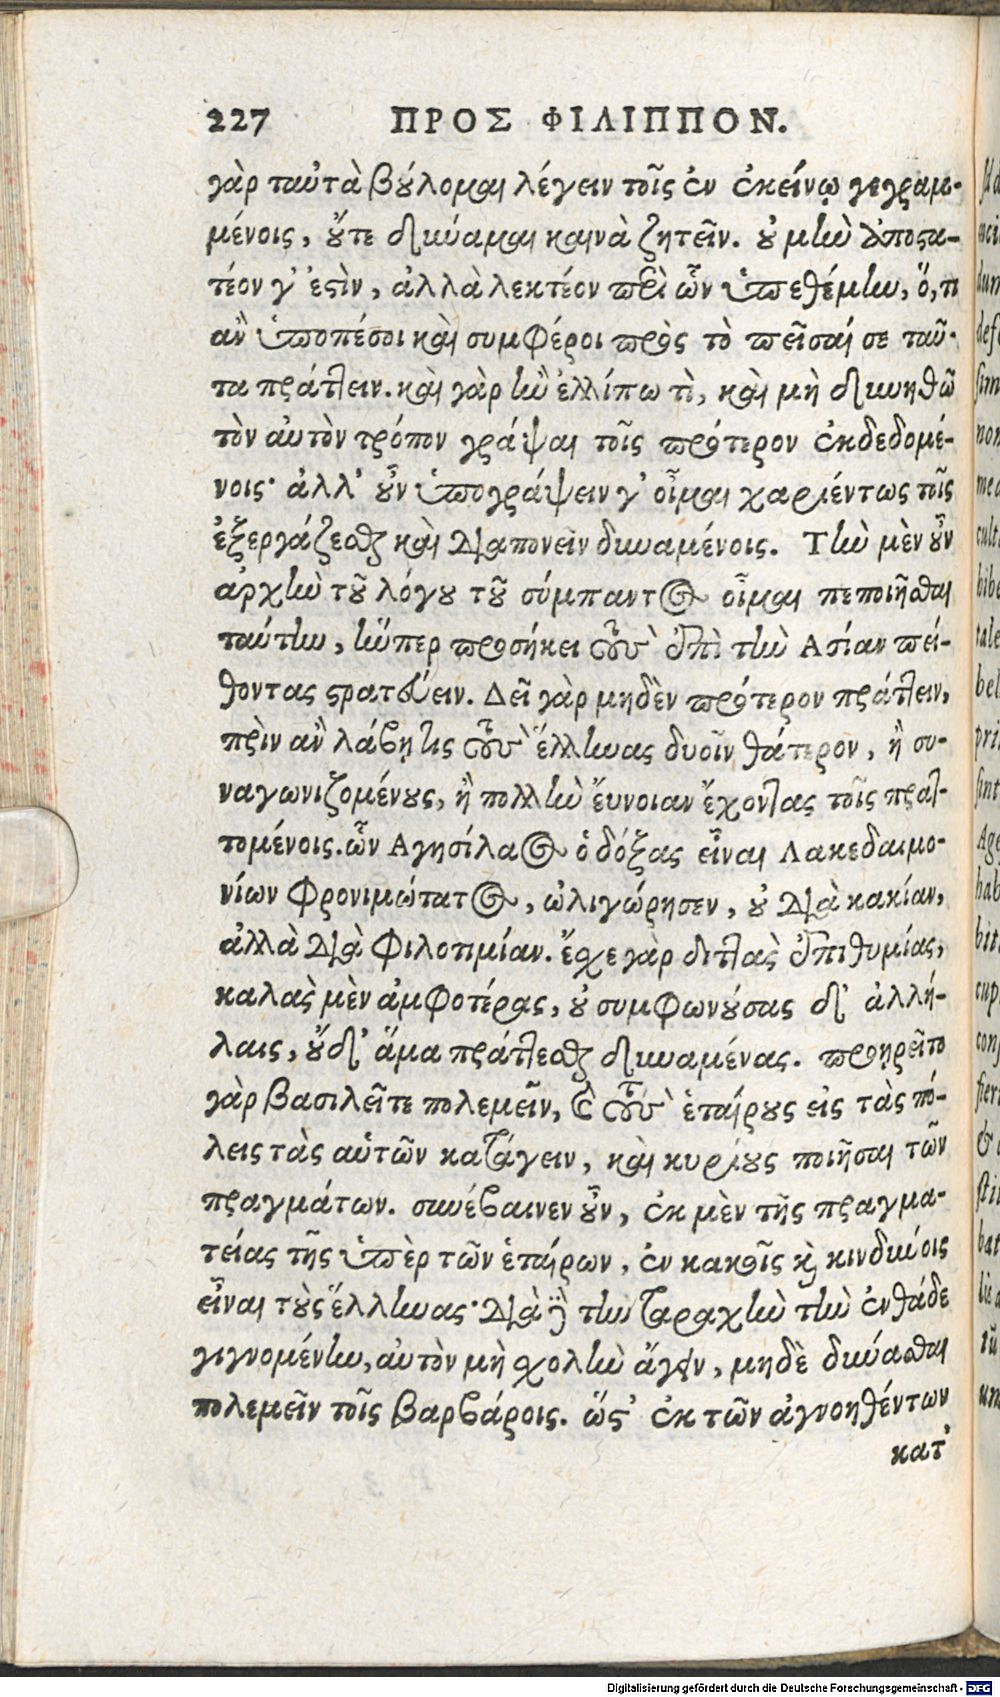 227 ΠΡΟΣ ΦΙΛΙΠΠΟΝ.
γὰρ ταὐτὰ βούλομαι λέγειν τοῖς ἐν ἐκείνῳ γεγραμ-
μένοις, οὔτε δ\ κύαμαι καινὰ ζητεῖν. οὐ μὴν ἀποστα-
τέον γ' ἐστὶν, ἀλλὰ λεκτέον περὶ ὧν ὑπεθέμην, ὅ,τι
ἂν ὑποπέσοι καὶ συμφέροι πρὸς τὸ πεῖσαί σε ταῦ-
τα πράττειν. καὶ γὰρ ἢν ἐλλίπω τὶ, καὶ μὴ δυνηθῶ
τὸν αὐτὸν τρόπον γράψαι τοῖς πρότερον ἐκδεδομέ-
νοις· ἀλλ' οὖν ὑπογράψειν γ' οἶμαι χαριέντως τοῖς
ἐξεργάζεσθαι καὶ διαπονεῖν δυναμένοις. Τὴν μὲν οὖν
ἀρχὴν τοῦ λόγου τοῦ σύμπαντος οἶμαι πεποιῆσθαι
ταύτην, ἥνπερ προσήκει τοὺς ἐπὶ τὴν Ασίαν πεί-
θοντας στρατεύειν. Δεῖ γὰρ μηδὲν πρότερον πράττειν,
πρὶν ἂν λάβῃ τις τοὺς ἕλληνας δυοῖν θάτερον, ἢ συ-
ναγωνιζομένους, ἢ πολλὴν ἔυνοιαν ἔχοντας τοῖς πρατ-
τομένοις. ὧν Αγησίλαος ὁ δόξας εἶναι Λακεδαιμο-
νίων φρονιμώτατος, ὠλιγώρησεν, οὐ διὰ κακίαν,
ἀλλὰ διὰ φιλοτιμίαν. ἔσχε γὰρ διττὰς ἐπιθυμίας,
καλὰς μὲν ἀμφοτέρας, οὐ συμφωνούσας δ' ἀλλή-
λαις, οὐδ' ἅμα πράττεσθαι δυναμένας. προῃρεῖτο
γὰρ βασιλεῖ τε πολεμεῖν, καὶ τοὺς ἑταίρους εἰς τὰς πό-
λεις τὰς αὑτῶν κατάγειν, καὶ κυρίους ποιῆσαι τῶν
πραγμάτων. συνέβαινεν οὖν, ἐκ μὲν τῆς πραγμα-
τείας τῆς ὑπὲρ τῶν ἑταίρων, ἐν κακοῖς καὶ κινδύνοις
εἶναι τοὺς ἕλληνας· διὰ δὲ τὴν ταραχὴν τὴν ἐνθάδε
γιγνομένην, αὐτὸν μὴ σχολὴν ἄγειν, μηδὲ δύνασθαι
πολεμεῖν τοῖς βαρβάροις. ὥστ' ἐκ τῶν ἀγνοηθέντων
κατ'
Digitalisierung gefördert durch die Deutsche Forschungsgemeinschaft - DFG